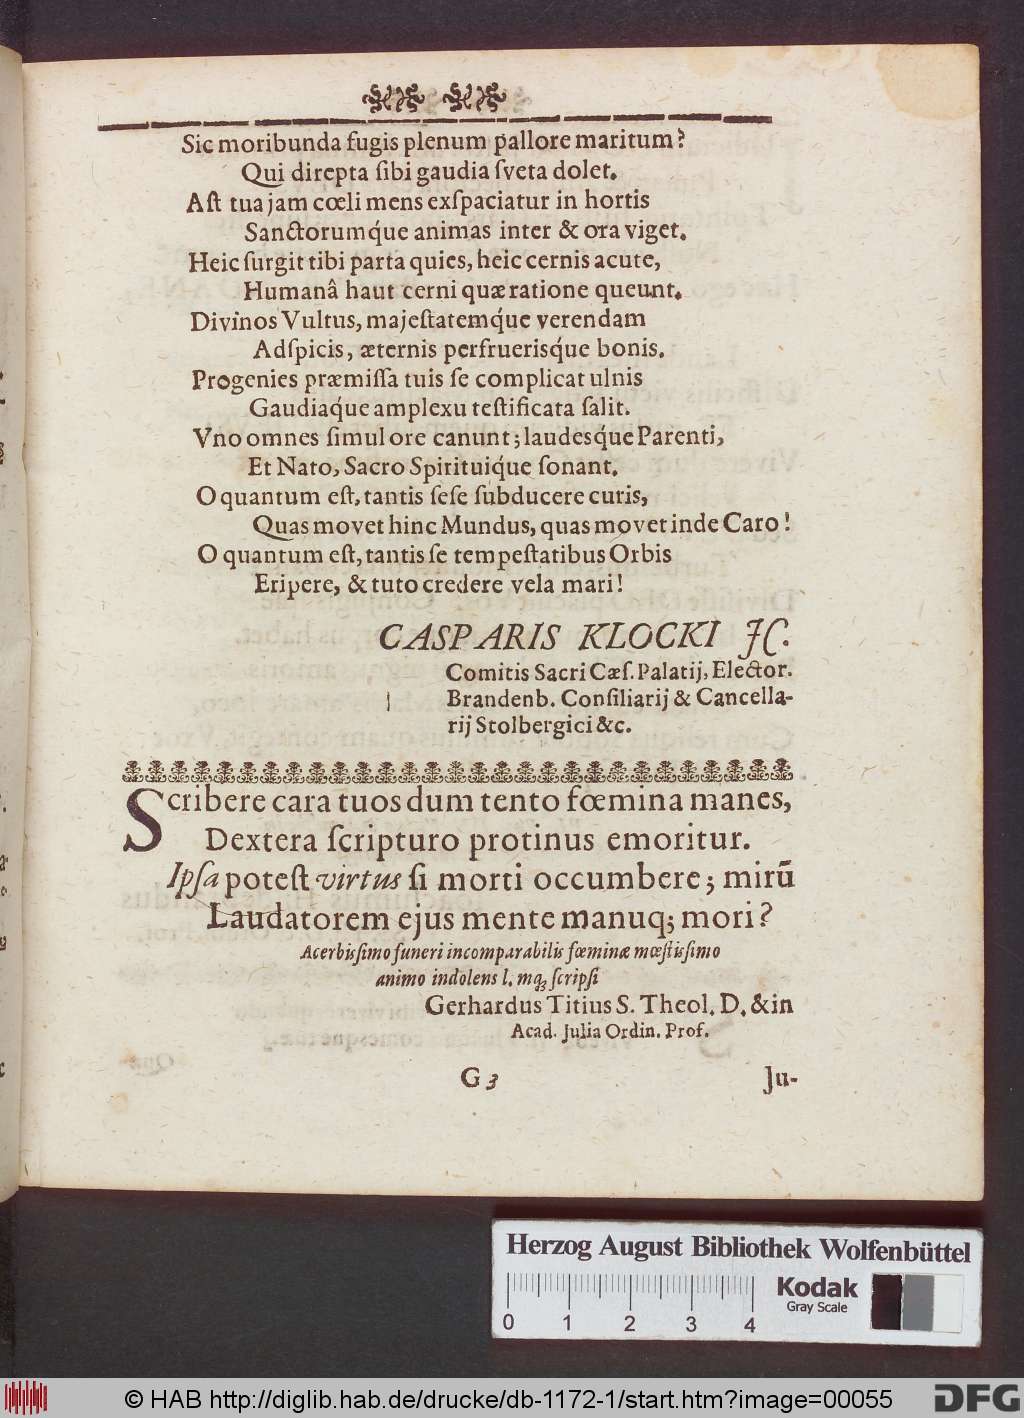 Sic moribunda fugis plenum pallore maritum?
Qui direpta ſibi gaudia ſveta dolet.
Aſt tua jam cœli mens exſpaciatur in hortis
Sanctorumq́ue animas inter & ora viget.
Heic ſurgit tibi parta quies, heic cernis acute,
Humanâ haut cerni quæ ratione queunt.
Divinos Vultus, majeſtatemq́ue verendam
Adſpicis, æternis perfruerisq́ue bonis.
Progenies præmiſſa tuis ſe complicat ulnis
Gaudiaq́ue amplexu teſtificata ſalit.
Vno omnes ſimul ore canunt; laudesq́ue Parenti,
Et Nato, Sacro Spirituiq́ue ſonant.
O quantum eſt, tantis ſeſe ſubducere curis,
Quas movet hinc Mundus, quas movet inde Caro!
O quantum eſt, tantis ſe tempeſtatibus Orbis
Eripere, & tuto credere vela mari!
CASPARIS KLOCKI JC.
Comitis Sacri Cæſ. Palatij, Elector.
Brandenb. Conſiliarij & Cancella-
rij Stolbergici &c.
Scribere cara tuos dum tento fœmina manes,
Dextera ſcripturo protinus emoritur.
Ipſa poteſt virtus ſi morti occumbere; mirũ
Laudatorem ejus mente manuq; mori?
Acerbiſſimo funeri incomparabilis fœminæ mœſtiſſimo
animo indolens l. mq; ſcripſi
Gerhardus Titius S. Theol. D. & in
Acad. Julia Ordin. Prof.
G 3 Ju-
Herzog August Bibliothek Wolfenbüttel
Kodak
Gray Scale
0 1 2 3 4
© HAB http://diglib.hab.de/drucke/db-1172-1/start.htm?image=00055
DFG